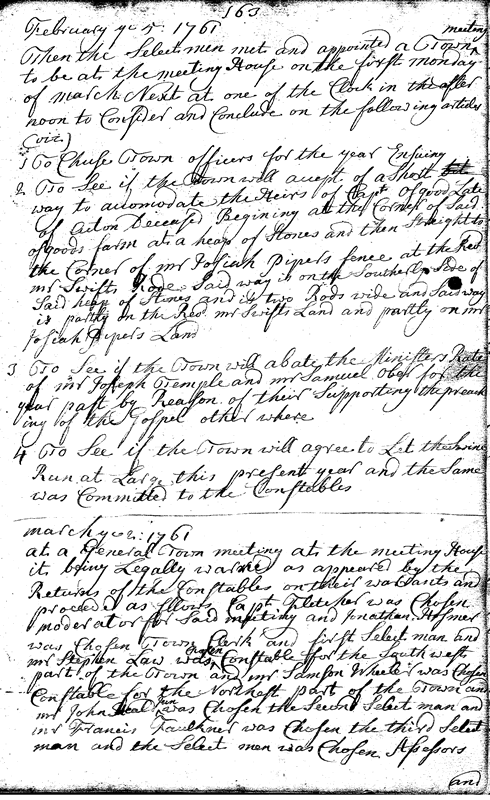 163
February ye 5: 1761
Then the Select men met and appointed a Town meeting
to be at the meeting House on the first monday
of march Next at one of the Clock in the after
noon to Consider and Conclude on the following articles
(viz)
1 To Chuse Town officers for the year Ensuing
2 To See if the Town will accept of a Short
way to accomodate the Heirs of Capt Osgood Late
of Acton Deceased Begining at the Corner of Said
osgoods farm at a heap of Stones and then Straight to
the Corner of mr Josiah Pipers fence at the Revd
mr Swifts Rode Said way is on the Southerly Side of
Said heap of Stones and is two Rods wide and Said way
is partly on the Revd mr Swifts Land and partly on mr
Josiah Pipers Land
3 To See if the Town will abate the Ministers Rate
of mr Joseph Temple and mr Samuel Ober for the
year past by Reason of their Supporting the preach
ing of the Gospel other where
4 To See if the Town will agree to Let the Swine
Run at Large this present year and the Same
was Committed to the Constables
march ye 2: 1761
at a General Town meeting at the meeting House
it being Legally warned as appeared by the
Returns of the Constables on their warrants and
proceded as follows Capt Fletcher was Chosen
moderator for Said meeting and Jonathan Hosmer
was Chosen Town Clerk and first Select man and
mr Stephen Law was Chosen Constable for the South west
part of the Town and mr Samson Wheeler was Chosen
Constable for the Northest part of the Town and
mr John Heald Jun was Chosen the Second Select man and
mr Francis Faulkner was Chosen the third Select
man and the Select men was Chosen Assessors
and